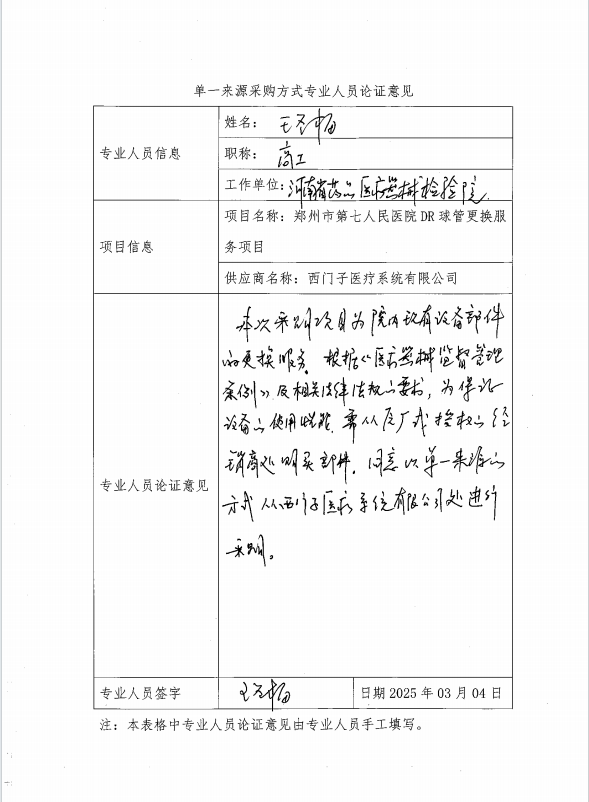 单一来源采购方式专业人员论证意见
专业人员信息
姓名：王
职称：高工
工作单位:河南省药品医疗器械检验院
项目信息
项目名称：郑州市第七人民医院DR球管更换服
务项目
供应商名称：西门子医疗系统有限公司
专业人员论证意见
本次采购项目为院内现有设备部件
的更换服务。根据《医疗器械监督管理
条例》及相关法律法规的要求，为保证
设备的使用性能，需从原厂或授权的经
销商处购买部件，同意以单一来源的
方式从西门子医疗系统有限公司处进行
采购。
专业人员签字
王
日期 2025 年 03 月 04 日
注：本表格中专业人员论证意见由专业人员手工填写。